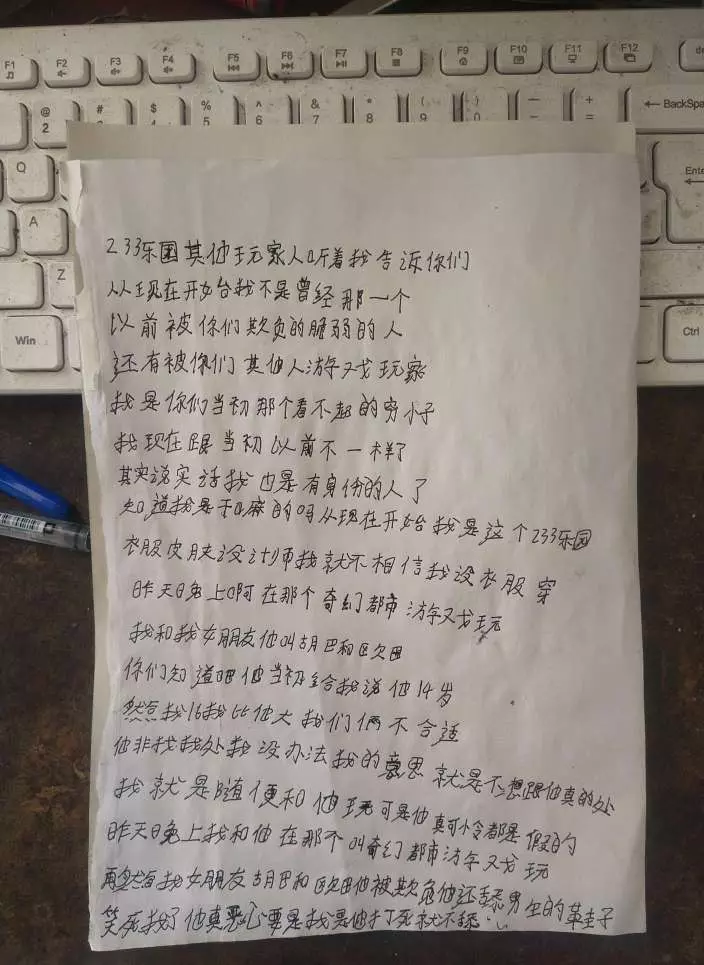 F1
F2
F3
F4
F5
F6
F7
F8
F9
F10
F11
F12
de
@
2
#
3
$
4
%
5
^
6
&
7
*
8
(
9
)
0
—
-
+
=
← BackSpa
Q
Ente
A
Z
Win
Ctrl
233乐园其他玩家人听着我告诉你们
从现在开始台我不是曾经那一个
以前被你们欺负的脆弱的人
还有被你们其他人游字戏玩家
我是你们当初那个看不起的穷小子
我现在跟当初以前不一样了
其实说实话我也是有身份的人了
知道我是干嘛的吗从现在开始台我是这个233乐园
衣服皮肤设计师我就不相信我没衣服穿
昨天晚上啊在那个奇幻都市游字戏玩
我和我女朋友他叫胡巴和欧田
你们知道吧他当初给我说他14岁
然后我16我比他大我们俩不合适
他非找我处我没办法我的意思就是不想跟他真的处
我就是随便和他玩可是他真可怜都是假的
昨天晚上我和他在那个叫奇幻都市游字戏玩
再然后我女朋友胡巴和欧田他被欺负他还舔男生的革圭子
笑死我了他真恶心要是我是他打死就不舔